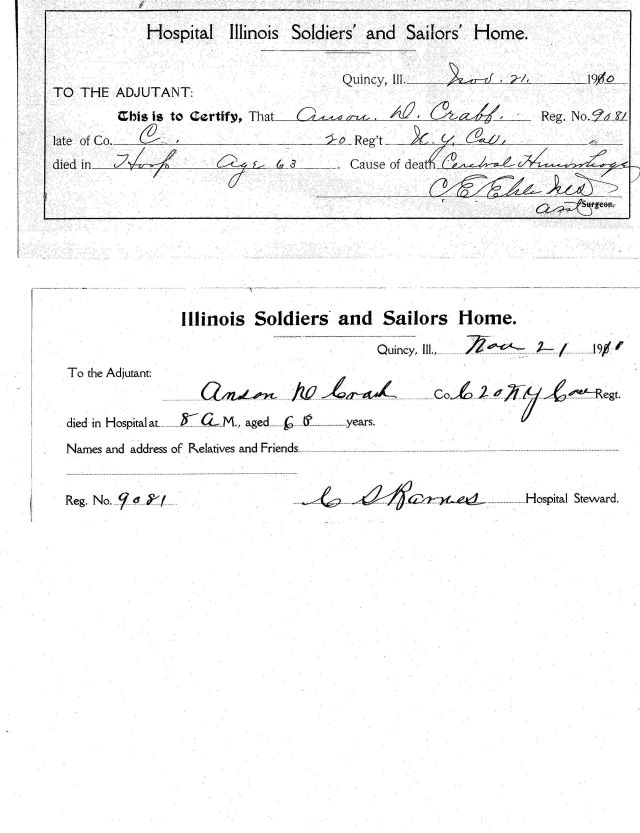 Hospital Illinois Soldiers' and Sailors' Home.
Quincy, Ill. Nov. 21. 1910
TO THE ADJUTANT:
This is to Certify, That Anson. D. Crabb. Reg. No. 9081
late of Co. C. 20 Reg't N. Y. Cav.
died in Hosp Age 63 Cause of death Cerebral
C E Ehle MD
asst Surgeon.
Illinois Soldiers and Sailors Home.
Quincy, Ill., Nov 21 1910
To the Adjutant:
Anson D Co. C 20 N Y Cav Regt.
died in Hospital at 8 A M., aged years.
Names and address of Relatives and Friends
Reg. No. 9081 C S Barnes Hospital Steward.